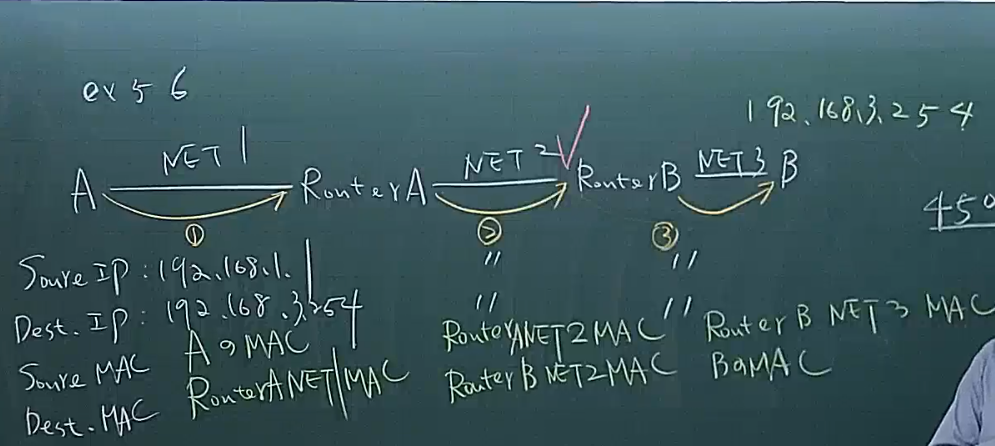 ex 5 6
192.168.3.254
A NET 1 RouterA NET 2 RouterB NET 3 B
450
① ② ③
Soure IP : 192.168.1.1 〃 〃
Dest. IP : 192.168.3.254 〃 〃
Soure MAC AのMAC RouterANET2MAC RouterB NET3 MAC
Dest. MAC RouterANET1MAC RouterB NET2MAC BのMAC